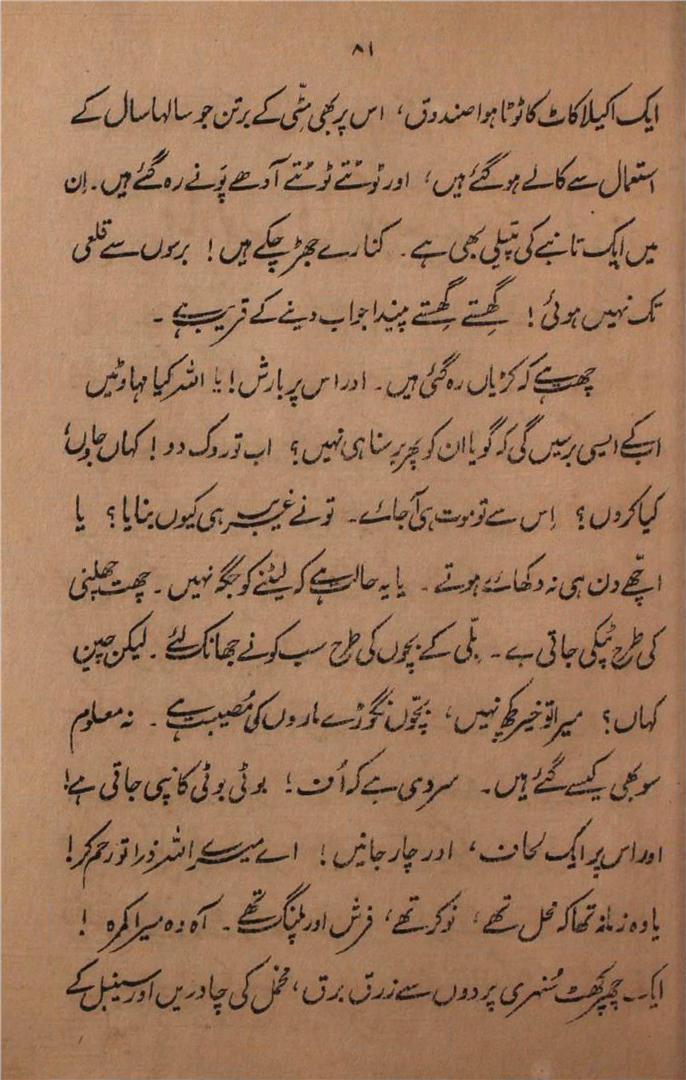 ۸۱
ایک اکیلا کاٹ کا ٹوٹا ہوا صندوق، اس پر بھی مٹّی کے برتن جو سالہا سال کے
استعمال سے کالے ہو گئے ہیں، اور ٹوٹتے ٹوٹتے آدھے پَونے رہ گئے ہیں۔ اِن
میں ایک تانبے کی پتیلی بھی ہے۔ کنارے جھڑ چکے ہیں! برسوں سے قلعی
تک نہیں ہوئی! گھِستے گھِستے پیندا جواب دینے کے قریب ہے۔
چھت ہے کہ کڑیاں رہ گئی ہیں۔ اور اس پر بارش! یا اللہ کیا مہاوٹیں
اب کے ایسی برسیں گی کہ گویا ان کو پھر برسنا ہی نہیں؟ اب تو روک دو! کہاں جاؤں،
کیا کروں؟ اِس سے تو موت ہی آ جائے۔ تو نے غریب ہی کیوں بنایا؟ یا
اچھّے دن ہی نہ دکھائے ہوتے۔ یا یہ حالت ہے کہ لیٹنے کو جگہ نہیں۔ چھت چھلنی
کی طرح ٹپکی جاتی ہے۔ بلّی کے بچوں کی طرح سب کونے جھانک لئے۔ لیکن چین
کہاں؟ میرا تو خیر کچھ نہیں، بچّوں نگوڑے ماروں کی مُصیبت ہے۔ نہ معلوم
سو بھی کیسے گئے ہیں۔ سردی ہے کہ اُف! بوٹی بوٹی کانپی جاتی ہے!
اور اس پر ایک لحاف، اور چار جانیں! اے میرے اللہ ذرا تو رحم کر!
یا وہ زمانہ تھا کہ محل تھے، نوکر تھے، فرش اور پلنگ تھے۔ آہ وہ میرا کمرہ!
ایک چھپرکھٹ سُنہری پردوں سے زرق برق، مخمل کی چادریں اور سینبل کے